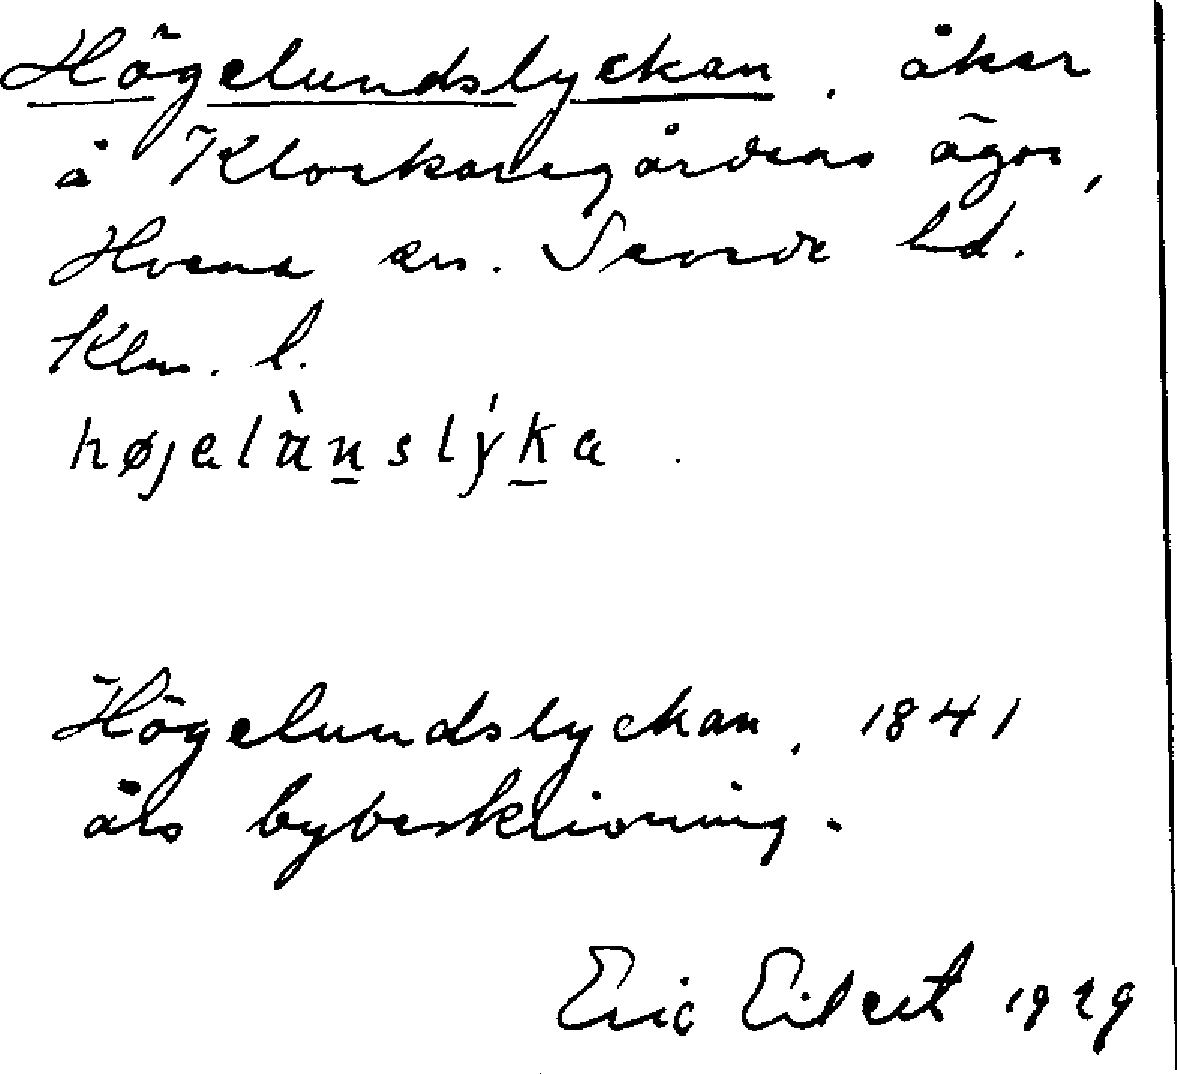 Högelundslyckan, åker
å Klockaregårdens ägor,
Hvena sn. Sevede hd.
Klm. l.
højelànslýka.
Högelundslyckan, 1841
års bybeskrivning.
Eric Eilert 1929